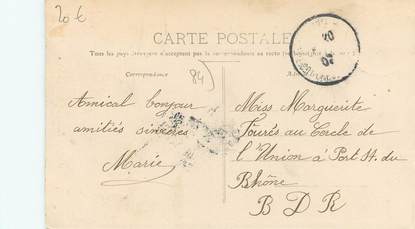 20 €
CARTE POSTALE
Tous les pays étrangers n'acceptent pas la correspondance au recto
Correspondance
84
Amical bonjour
amitiés sincères
Marie
Miss Marguerite
Tourés au Cercle de
l'Union à Port St. du
Rhône
B D R